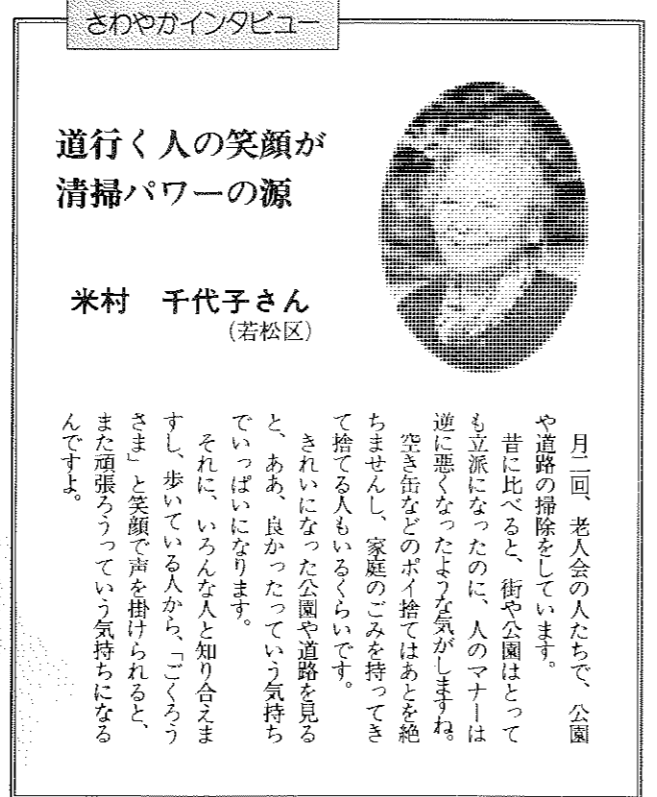 さわやかインタビュー
道行く人の笑顔が
清掃パワーの源
米村　千代子さん
（若松区）
月二回、老人会の人たちで、公園
や道路の掃除をしています。
昔に比べると、街や公園はとって
も立派になったのに、人のマナーは
逆に悪くなったような気がしますね。
空き缶などのポイ捨てはあとを絶
ちませんし、家庭のごみを持ってき
て捨てる人もいるくらいです。
きれいになった公園や道路を見る
と、ああ、良かったっていう気持ち
でいっぱいになります。
それに、いろんな人と知り合えま
すし、歩いている人から、「ごくろう
さま」と笑顔で声を掛けられると、
また頑張ろうっていう気持ちになる
んですよ。